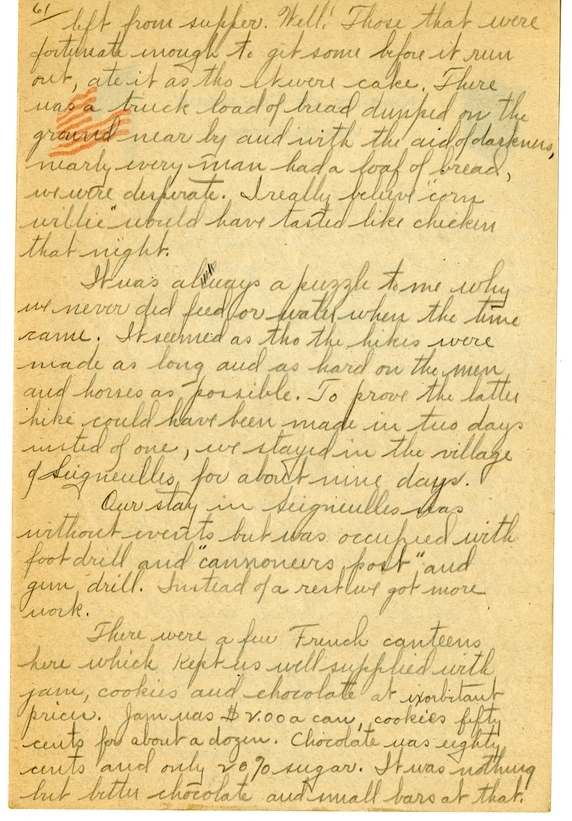 61/
left from supper. Well! Those that were
fortunate enough to git some before it run
out, ate it as tho it were cake. There
was a truck load of bread dumped on the
ground near by and with the aid of darkness,
nearly every man had a loaf of bread,
we were desperate. I really believe "corn
willie" would have tasted like chicken
that night.
It was always a puzzle to me why
we never did feed or water when the time
came. It seemed as tho the hikes were
made as long and as hard on the men
and horses as possible. To prove the latter
hike could have been made in two days
insted of one, we stayed in the village
of Seigneulles for about nine days.
Our stay in Seigneulles was
without events but was occupied with
foot drill and "cannoneers post" and
gun drill. Instead of a rest we got more
work.
There were a few French canteens
here which kept us well supplied with
jam, cookies and chocolate at exorbitant
prices. Jam was $2.00 a can, cookies fifty
cents for about a dozen. Chocolate was eighty
cents and only 20% sugar. It was nothing
but bitter chocolate and small bars at that.